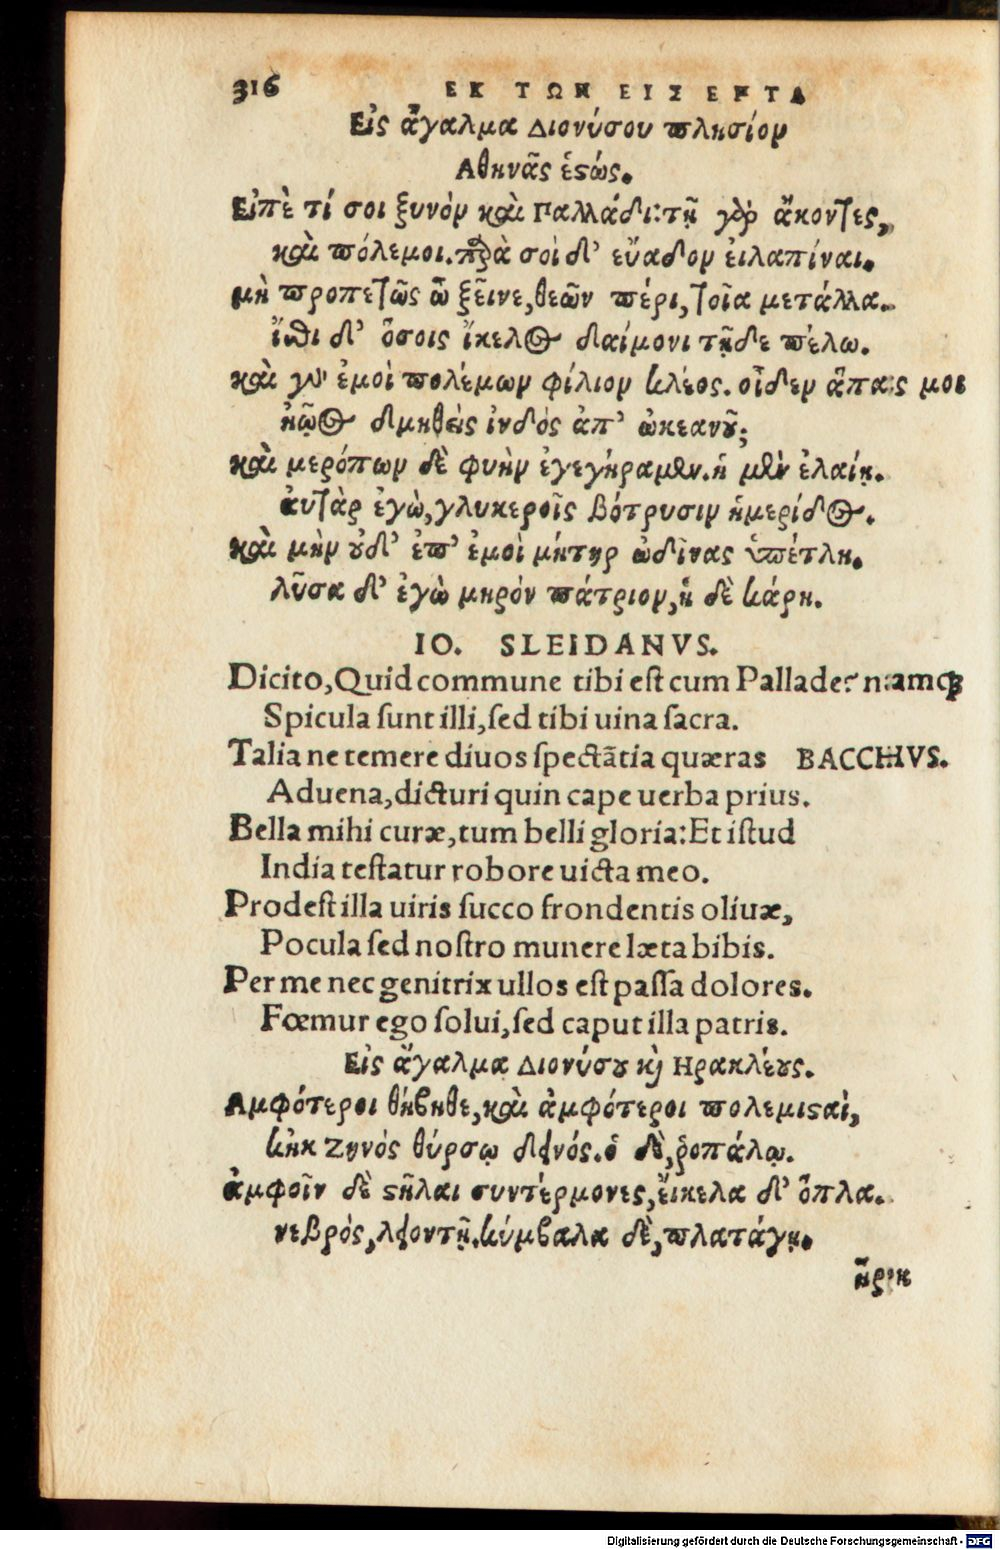 316 ΕΚ ΤΩΝ ΕΙΣ ΕΠΤΑ
Εἰς ἄγαλμα Διονύσου πλησίον
Αθηνᾶς ἑστώς.
Εἰπὲ τί σοι ξυνὸν καὶ Παλλάδι; τῇ γὰρ ἄκοντες,
καὶ πόλεμοι. παρὰ σοὶ δ' εὔαδον εἰλαπίναι.
μὴ προπετῶς ὦ ξεῖνε, θεῶν πέρι, τοῖα μετάλλα.
ἴσθι δ' ὅσοις ἴκελος δαίμονι τῇδε πέλω.
καὶ γὰρ ἐμοὶ πολέμων φίλιον κλέος. οἶδεν ἅπας μοι
ἠῷος δμηθεὶς ἰνδὸς ἀπ' ὠκεανοῦ;
καὶ μερόπων δὲ φυὴν ἐγεγήραμεν. ἡ μὲν ἐλαίῃ.
ἀυτὰρ ἐγὼ, γλυκεροῖς βότρυσιν ἡμερίδος.
καὶ μὴν οὐδ' ἐπ' ἐμοὶ μήτηρ ὠδῖνας ὑπέτλη.
λῦσα δ' ἐγὼ μηρόν πάτριον, ἡ δὲ κάρη.
IO. SLEIDANVS.
Dicito, Quid commune tibi est cum Pallade? namq́;
Spicula sunt illi, sed tibi uina sacra.
Talia ne temere diuos spectãtia quæras BACCHVS.
Aduena, dicturi quin cape uerba prius.
Bella mihi curæ, tum belli gloria: Et istud
India testatur robore uicta meo.
Prodest illa uiris succo frondentis oliuæ,
Pocula sed nostro munere læta bibis.
Per me nec genitrix ullos est passa dolores.
Fœmur ego solui, sed caput illa patris.
Εἰς ἄγαλμα Διονύσου καὶ Ηρακλέους.
Αμφότεροι θήβηθε, καὶ ἀμφότεροι πολεμισταὶ,
κἠκ Ζηνός θύρσῳ δεινός. ὁ δὲ, ῥοπάλῳ.
ἀμφοῖν δὲ στῆλαι συντέρμονες, εἴκελα δ' ὅπλα.
νεβρός, λεοντῇ. κύμβαλα δὲ, πλατάγῃ.
ἥρ κ
Digitalisierung gefördert durch die Deutsche Forschungsgemeinschaft - DFG